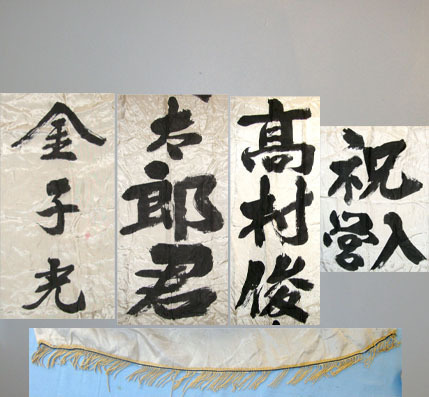 祝
入営
髙村俊
太郎君
金子光